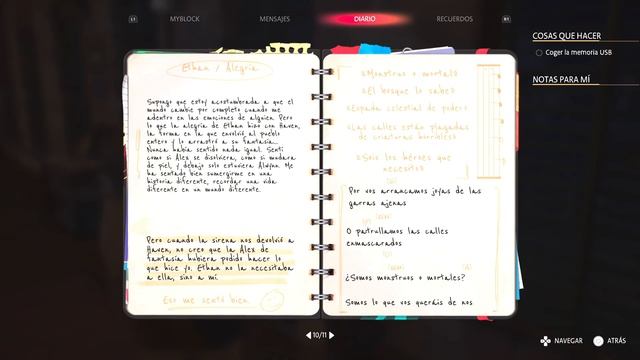 L1
MYBLOCK
MENSAJES
DIARIO
RECUERDOS
R1
COSAS QUE HACER
Coger la memoria USB
NOTAS PARA MÍ
Ethan / Alegría
Supongo que estoy acostumbrada a que el
mundo cambie por completo cuando me
adentro en las emociones de alguien. Pero
lo que la alegría de Ethan hizo con Haven,
la forma en la que envolvió al pueblo
entero y lo arrastró a su fantasía...
Nunca había sentido nada igual. Sentí
como si Alex se disolviera, como si mudara
de piel, y debajo solo estuviera Alwynn. Me
ha sentado bien sumergirme en una
historia diferente, recordar una vida
diferente en un mundo diferente.
Pero cuando la sirena nos devolvió a
Haven, no creo que la Alex de
fantasía hubiera podido hacer lo
que hice yo. Ethan no la necesitaba
a ella, sino a mí.
Eso me sentó bien.
¿Monstruo o mortal?
¿El bosque lo sabe?
¿Espada celestial de poder?
¿Las calles están plagadas
de criaturas horribles?
¿Sois los héroes que
necesito?
Por vos arrancamos joyas de las
garras ajenas
O patrullamos las calles
enmascarados
¿Somos monstruos o mortales?
Somos lo que vos queráis de nos
10/11
NAVEGAR
ATRÁS